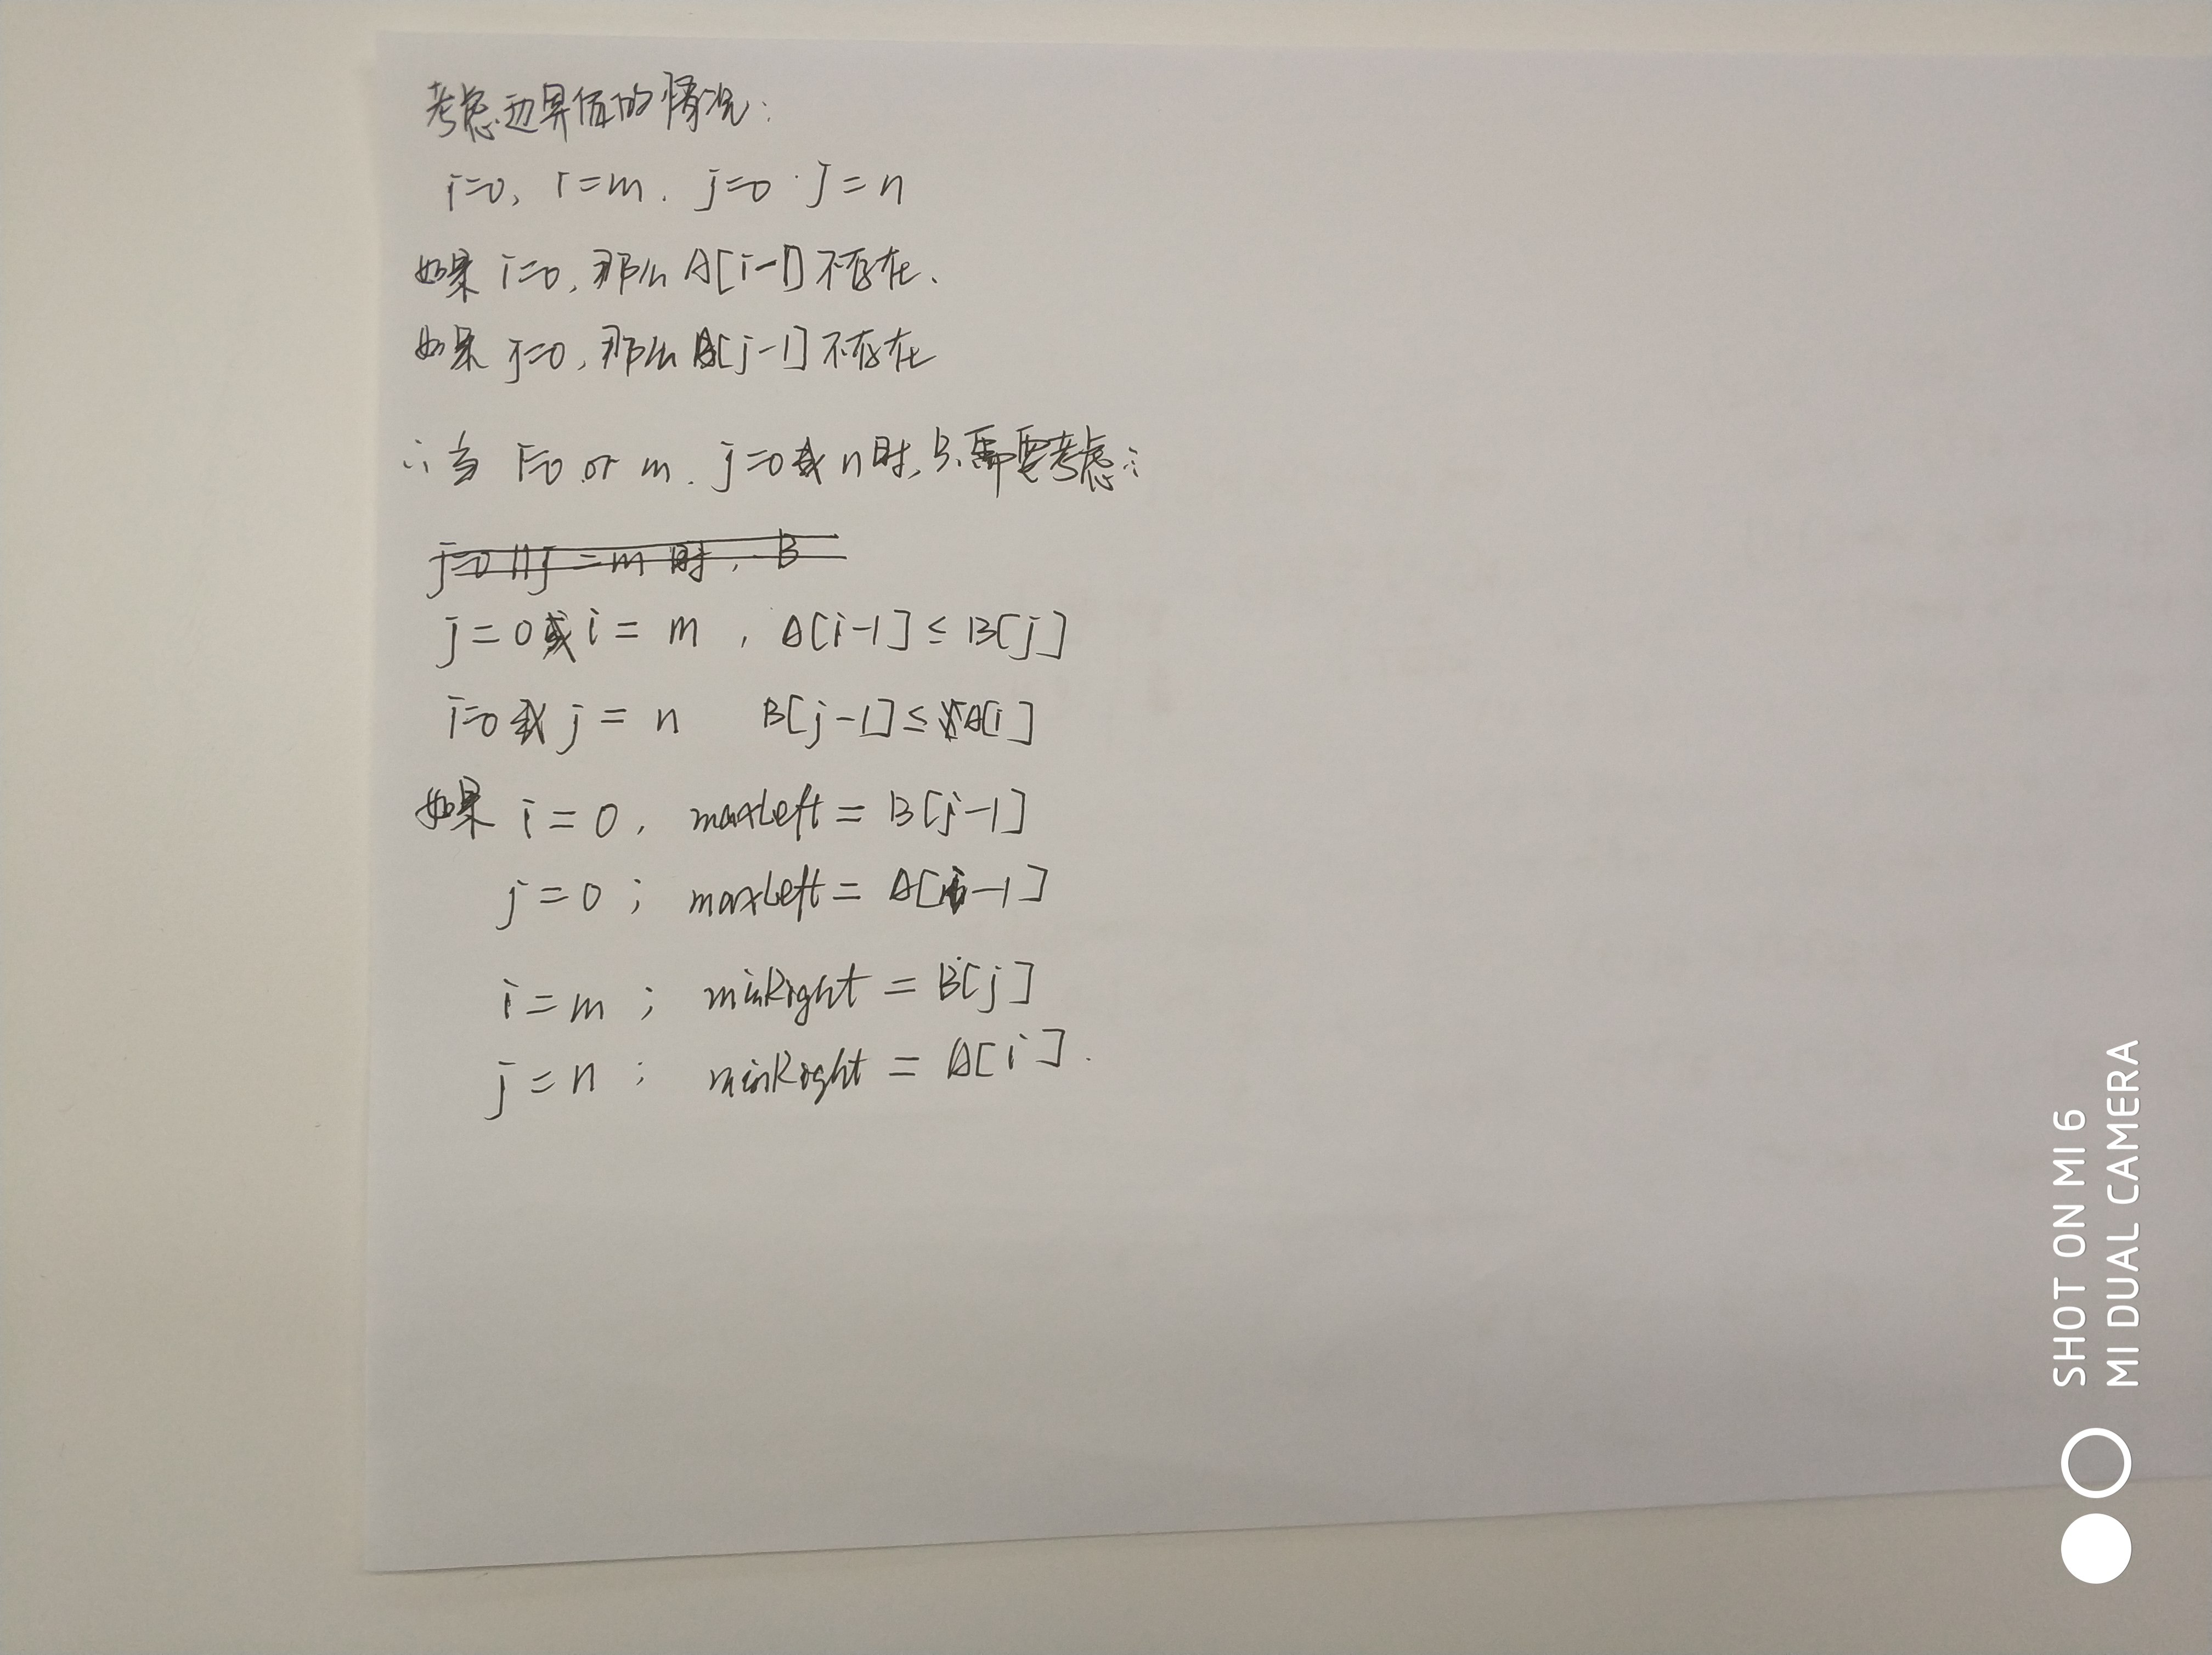 考虑边界值的情况:
i=0, i=m. j=0. j=n
如果 i=0, 那么 A[i-1]不存在.
如果 j=0, 那么 B[j-1]不存在
∴ 当 i=0 or m. j=0或 n时, 只需要考虑:
j=0 || j=m 时, B
j=0或 i=m, A[i-1]≤B[j]
i=0或 j=n B[j-1]≤A[i]
如果 i=0, maxLeft=B[j-1]
j=0; maxLeft=A[i-1]
i=m; minRight=B[j]
j=n; minRight=A[i].
SHOT ON MI 6
MI DUAL CAMERA